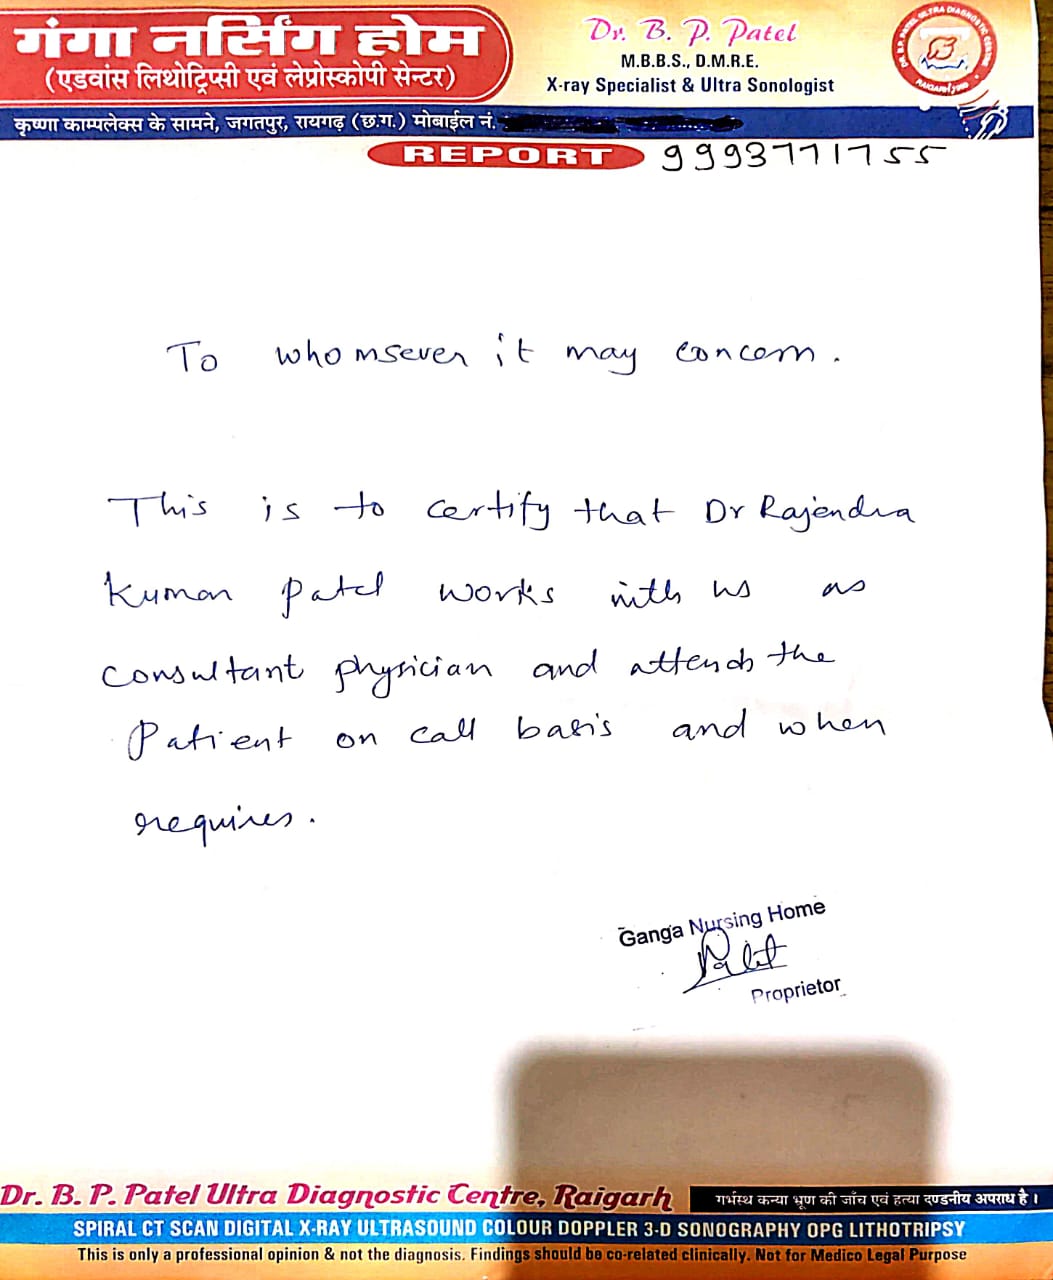 गंगा नर्सिंग होम
(एडवांस लिथोट्रिप्सी एवं लेप्रोस्कोपी सेन्टर)
Dr. B. P. Patel
M.B.B.S., D.M.R.E.
X-ray Specialist & Ultra Sonologist
कृष्णा काम्पलेक्स के सामने, जगतपुर, रायगढ़ (छ.ग.) मोबाईल नं.
REPORT 9993771755
To whomsever it may concern.
This is to certify that Dr Rajendra
Kumar Patel works with us as
consultant physician and attends the
Patient on call basis and when
requires.
Ganga Nursing Home
Proprietor
Dr. B. P. Patel Ultra Diagnostic Centre, Raigarh
गर्भस्थ कन्या भ्रूण की जाँच एवं हत्या दण्डनीय अपराध है।
SPIRAL CT SCAN DIGITAL X-RAY ULTRASOUND COLOUR DOPPLER 3-D SONOGRAPHY OPG LITHOTRIPSY
This is only a professional opinion & not the diagnosis. Findings should be co-related clinically. Not for Medico Legal Purpose